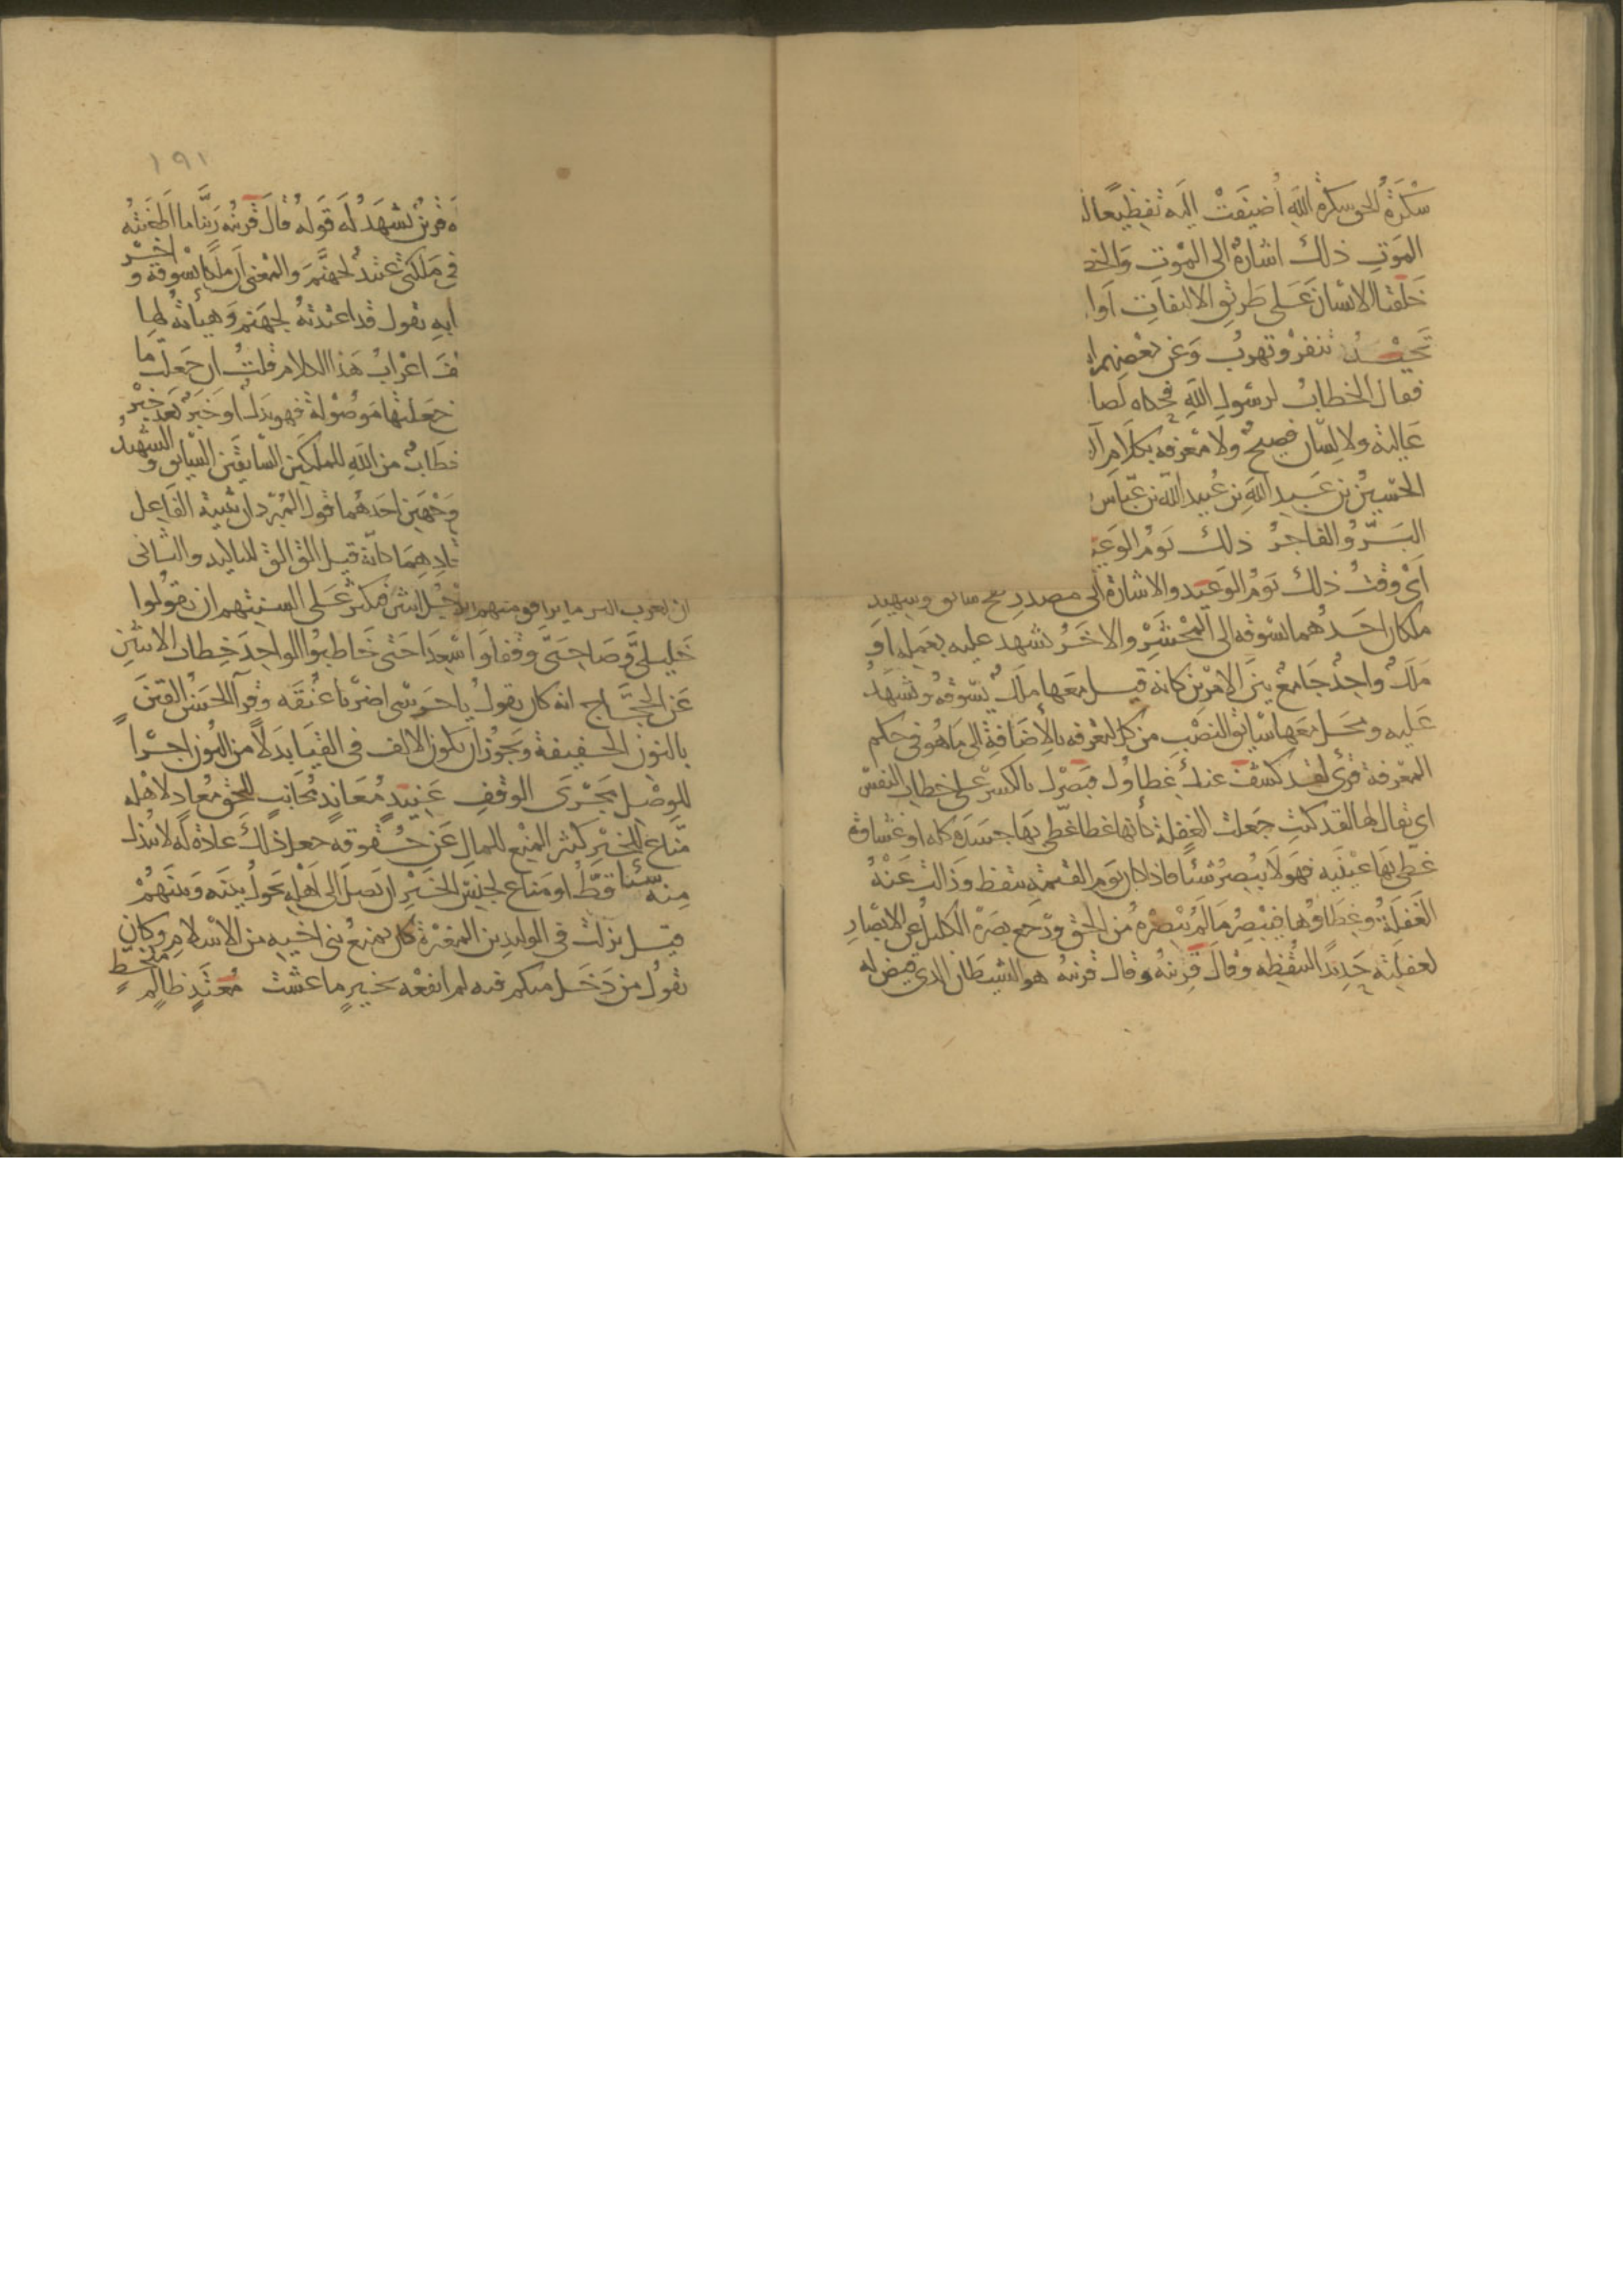 سَكْرَةُ الحق سكرة اللهِ أُضيفَتْ اليه تفظيعًا
الموتِ ذلك اشارةٌ الى الموتِ
خَلَقنا الانسانَ عَلى طريق الالتفاتِ اَو
تَحِيْدُ تنفرُ وتهربُ وَعَن بَعضِهم
فقال الخطابُ لرسولِ اللهِ فحكاه لصا
عَاليةٌ ولا لسانٌ فصيحٌ ولا مَعْرفة بكلَامِ
الحُسَين بن عَبدِ اللهِ بن عُبيد الله بن عَبَّاس
البَرُّ والفاجرُ ذلك يَومُ الوَعيد
اَىْ وَقتُ ذلك يَومُ الوَعيد والاشارةُ الى مصدرِ نفخ سائق وشهيد
ملكان احَدُهما يسوقه الى المَحْشَرِ والاخَرُ يشهد عليه بعَمله اَو
مَلكٌ واحِدٌ جَامعٌ بينَ الامْرين كانه قيل معَها ملَكٌ يَسُوقُه ويَشهَدُ
عَليه ومحَل معَها سَايقٌ النصْب من كل لتعَرفه بالإضَافةِ الى مَا هُو فى حكم
المعْرفة قرئ لقد كنت عنكِ غِطاؤكِ فبصرُكِ بالكسر على خطاب النفس
اى يقال لها لقد كنتِ جعلت الغفلة كأنها غطا غطّى بها جسَدَه كله او غشاوة
غطّى بها عينَيه فهو لَا يُبصِرُ شيئا فاذا كان يَوم القيمة تيقظ وزالت عَنهُ
الغَفلةُ وغِطاؤُها فيُبْصِرُ مَا لم يُبْصِرْهُ من الحق ورَجع بصَرُه الكليلُ عن الابْصارِ
لغفلته حَديدًا لتيقظه وَقالَ قرينُهُ وقال قرينهُ هو الشيطان الذى قيض له
١٩١
قرينٌ يَشهَدُ لَه قولهُ قالَ قرينُه رَبّنا ما اَطغَيتُه
فى مَلكتى عَتيدٌ لجهنَّمَ والمعْنى ان ملكا يسوقه واخَر
به يقول قد اعتدتهُ لجهَنم وهيأتهُ لها
اعْرابُ هَذا الكلام قلتُ ان جعلتَ مَا
جعَلتَها مَوصُولةً فهو بدَلٌ او خَبَرٌ بَعْد خبْر
خطابٌ من اللهِ للملَكين السَّابقَين السَّايق والشهيدُ
وَجْهَين احَدهُما قول المبَرّد ان تثنية الفَاعِل
لاتحادِهِمَا كانه قيل القِ القِ للتاكيد والثانى
ان العرب اكثر ما يرافق منهم الرجل اثنين فكثرَ عَلى السنتِهم ان يقُولوا
خَليلىَّ وصَاحِبَىَّ وقفا وَاسْعِدَا حَتى خَاطبُوا الواحِدَ خِطابَ الاثنَينِ
عَن الحجَّاج انه كان يقولُ يا حَرَسى اضربَا عُنُقَه وقرَأ الحسَنُ القيَنَ
بالنُونِ الخفيفةِ ويجوزُ ان يكون الالف فى القِيَا بدَلاً من النون اجْراً
للوَصْلِ مَجْرَى الوقفِ عَنِيدٍ مُعَاندٍ مُجَانبٍ للحقِ مُعادٍ لاهْله
مَنّاعٍ للخَيْرِ كثير المنْع للمال عَن حُقوقه جعل ذلك عَادَة لَه لا يبذل
مِنه شئا قطّ او مَناع لجنسِ الخَيْرِ ان يَصلَ الى اَهْلِه يحولُ بينَه وَبَينَهُمْ
قيل نزلت فى الوليدِ بن المغيرة كان يمنعُ بنى اخيه من الاسلام وكان
يقُولُ من دَخَل منكم فيه لم انفعْه بخيرٍ ما عشت مُعتَدٍ ظالمٍ متخطٍّ